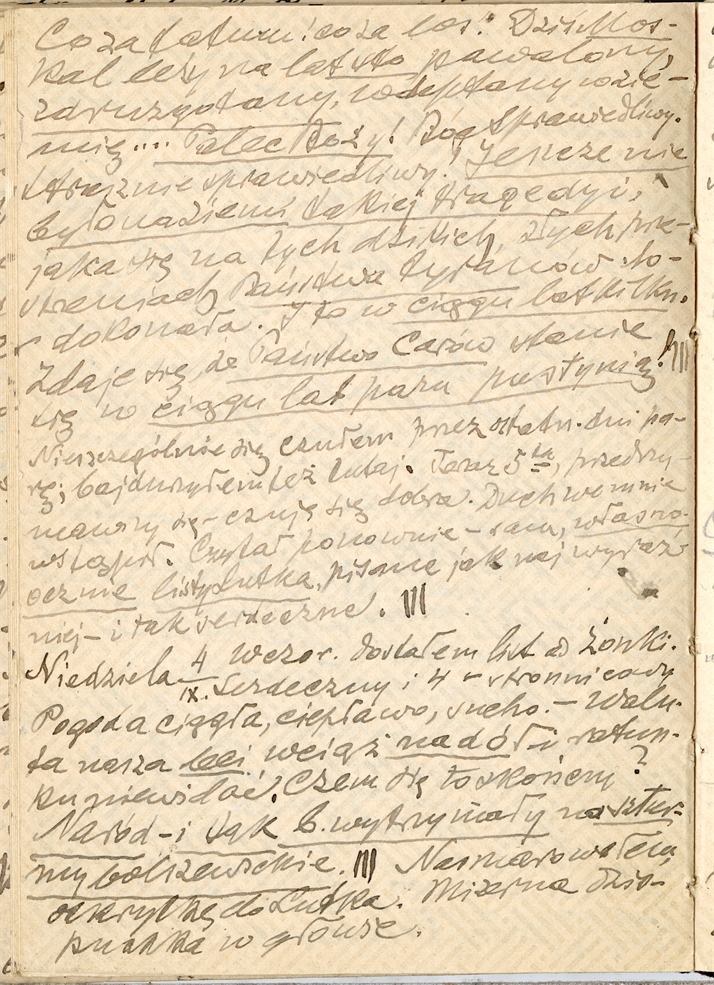 Co za fatum! co za los! Dziś Mos-
kal leży na lat sto powalony,
zdruzgotany, wdeptany w zie-
mię.... Palec Boży! Bóg Sprawiedliwy.
strasznie sprawiedliwy! Jeszcze nie
było na ziemi takiej tragedyi,
jaka się na tych dzikich, złych prze-
strzeniach Państwa tyranów do-
dokonała. I to w ciągu lat kilku.
Zdaje się, że Państwo Carów stanie
się w ciągu lat paru pustynią! |||
Nieszczególnie się czułem przez ostatn. dni pa-
rę; bajdurzyłem też tutaj. Teraz 5ta, przedrzy-
mawszy się - czuję się dobrze. Duch we mnie
wstąpił. Czytał ponownie - rano, własno-
ocznie listy Lutka, pisane jak naj wyraź-
niej - i tak serdeczne. |||
Niedziela 4/IX. Wczor. dostałem list od Żonki.
Serdeczny i 4 - stronnicowy
Pogoda ciągła, ciepławo, sucho. - Walu-
ta nasza leci wciąż nadół - i ratun-
ku niewidać! Czem się to skończy?
Naród - i tak b. wytrzymały na sztur-
my bolszewickie. ||| Nasmarowałem
odkrytkę do Lutka. Mizerna dzis-
pustka w głowie.